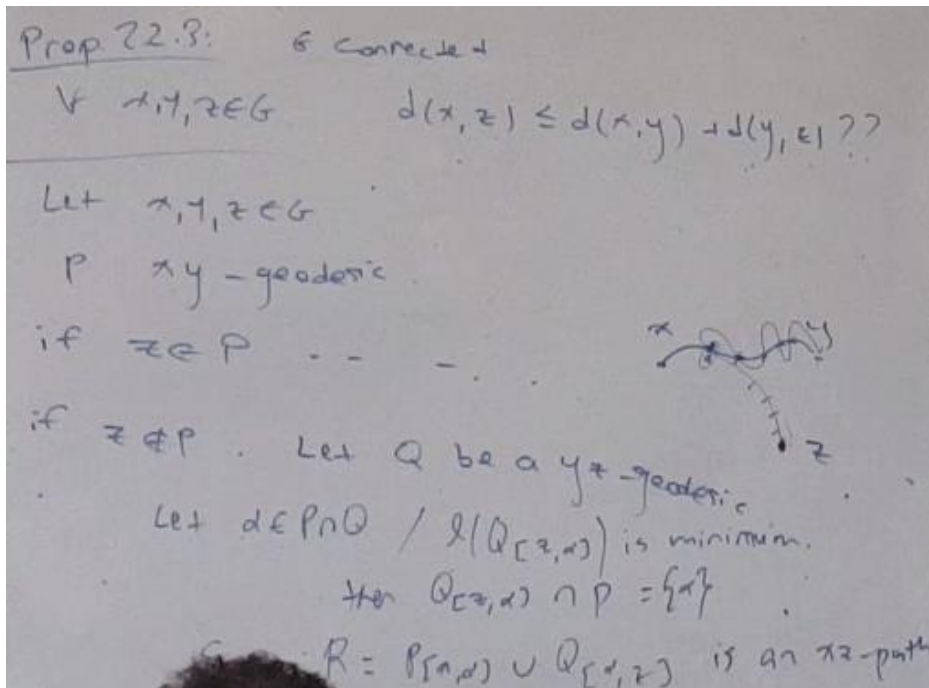 Prop. 22.3: G connected
∀ x,y,z∈G d(x,z) ≤ d(x,y) + d(y,z) ??
Let x,y,z∈G
P xy-geodesic
if z∈P -- -..
x y
z
if z∉P. Let Q be a yz-geodesic
Let α∈P∩Q / l(Q[z,α]) is minimum.
then Q[z,α] ∩ P = {α}
R = P[x,α] ∪ Q[α,z] is an xz-path